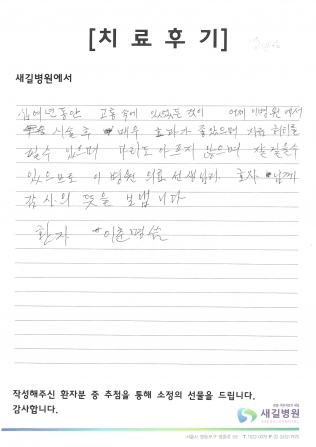 [치료후기]
새길병원에서
십여년동안 고통 속에 있었든 것이 어제 이병원에서
시술 후 매우 효과가 좋았으며 지금 허리를
필수 있으며 다리도 아프지 않으며 잘 걸을수
있으므로 이 병원 의료 선생님과 님께
감사의 뜻을 보냅니다
환자 이춘명 씀
작성해주신 환자분 중 추첨을 통해 소정의 선물을 드립니다.
감사합니다.
새길병원
SAEGIL HOSPITAL